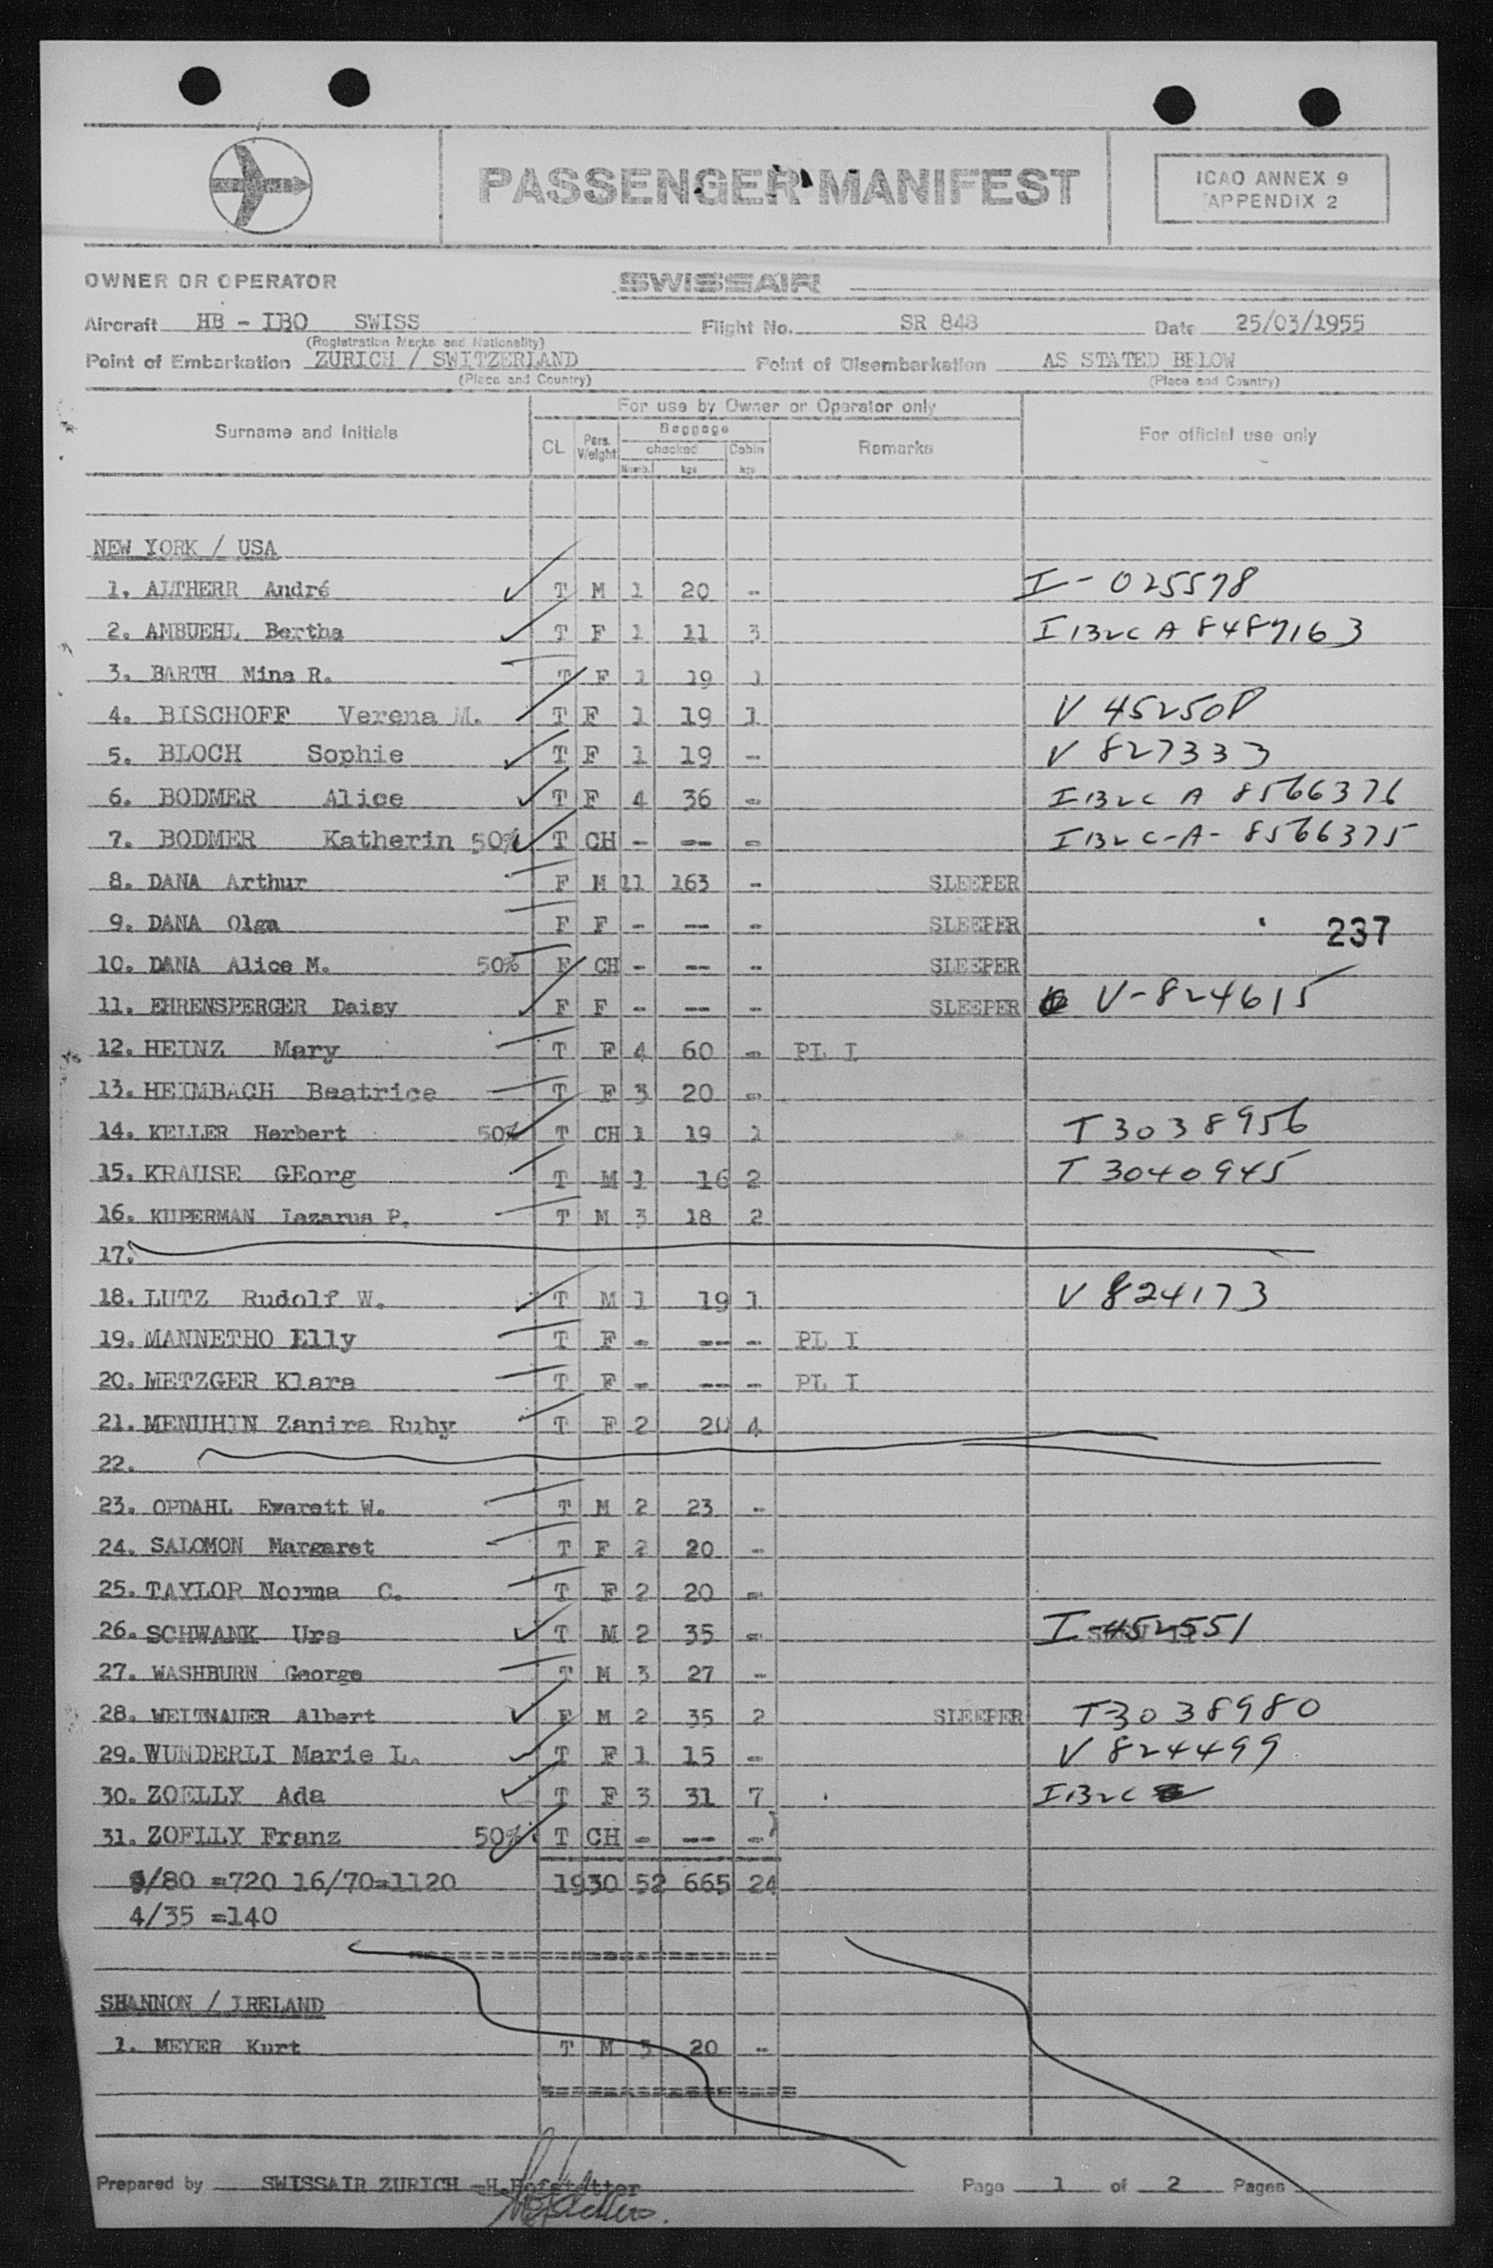 PASSENGER MANIFEST
ICAO ANNEX 9
APPENDIX 2
OWNER OR OPERATOR SWISSAIR
Aircraft HB - IBO SWISS Flight No. SR 848 Date 25/03/1955
(Registration Marks and Nationality)
Point of Embarkation ZURICH / SWITZERLAND Point of Disembarkation AS STATED BELOW
(Place and Country) (Place and Country)
For use by Owner or Operator only
Surname and Initials CL Pers. Weight Baggage checked Numb. kgs Cabin kgs Remarks For official use only
NEW YORK / USA
1. ALTHERR André T M 1 20 - I-025578
2. AMBUEHL Bertha T F 1 11 3 I132c A 8487163
3. BARTH Mina R. T F 1 19 1
4. BISCHOFF Verena M. T F 1 19 1 V 452508
5. BLOCH Sophie T F 1 19 - V 827333
6. BODMER Alice T F 4 36 - I132c A 8566376
7. BODMER Katherin 50% T CH - -- - I132c-A-8566375
8. DANA Arthur F M 11 163 - SLEEPER
9. DANA Olga F F - -- - SLEEPER 237
10. DANA Alice M. 50% F CH - -- - SLEEPER
11. EHRENSPERGER Daisy F F - -- - SLEEPER V-824615
12. HEINZ Mary T F 4 60 - PL I
13. HEIMBACH Beatrice T F 3 20 -
14. KELLER Herbert 50% T CH 1 19 1 T3038956
15. KRAUSE GEorg T M 1 16 2 T 3040945
16. KUPERMAN Lazarus P. T M 3 18 2
17.
18. LUTZ Rudolf W. T M 1 19 1 V 824173
19. MANNETHO Elly T F - -- - PL I
20. METZGER Klara T F - -- - PL I
21. MENUHIN Zanira Ruby T F 2 20 4
22.
23. OPDAHL Everett W. T M 2 23 -
24. SALOMON Margaret T F 2 20 -
25. TAYLOR Norma C. T F 2 20 -
26. SCHWANK Urs T M 2 35 - I-452551
27. WASHBURN George T M 3 27 -
28. WEITNAUER Albert F M 2 35 2 SLEEPER T3038980
29. WUNDERLI Marie L. T F 1 15 - V 824499
30. ZOELLY Ada T F 3 31 7 I132c
31. ZOELLY Franz 50% T CH - -- -
9/80 =720 16/70=1120 1930 52 665 24
4/35 =140
=======================
SHANNON / IRELAND
1. MEYER Kurt T M 3 20 -
================
Prepared by SWISSAIR ZURICH -H.Hofstetter Page 1 of 2 Pages